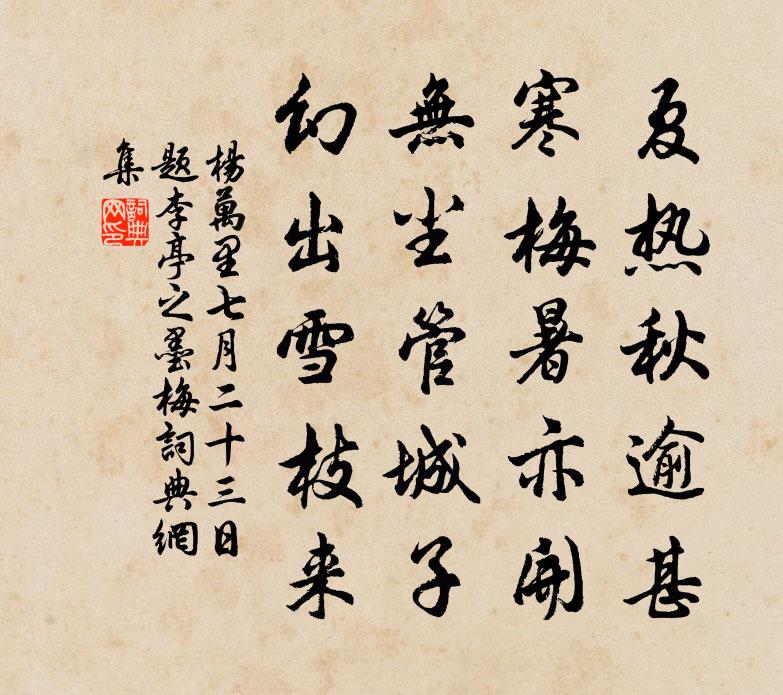 夏热秋逾甚
寒梅暑亦開
無尘管城子
幻出雪枝来
楊萬里七月二十三日
题李亭之墨梅詞典網
集
詞典
网印